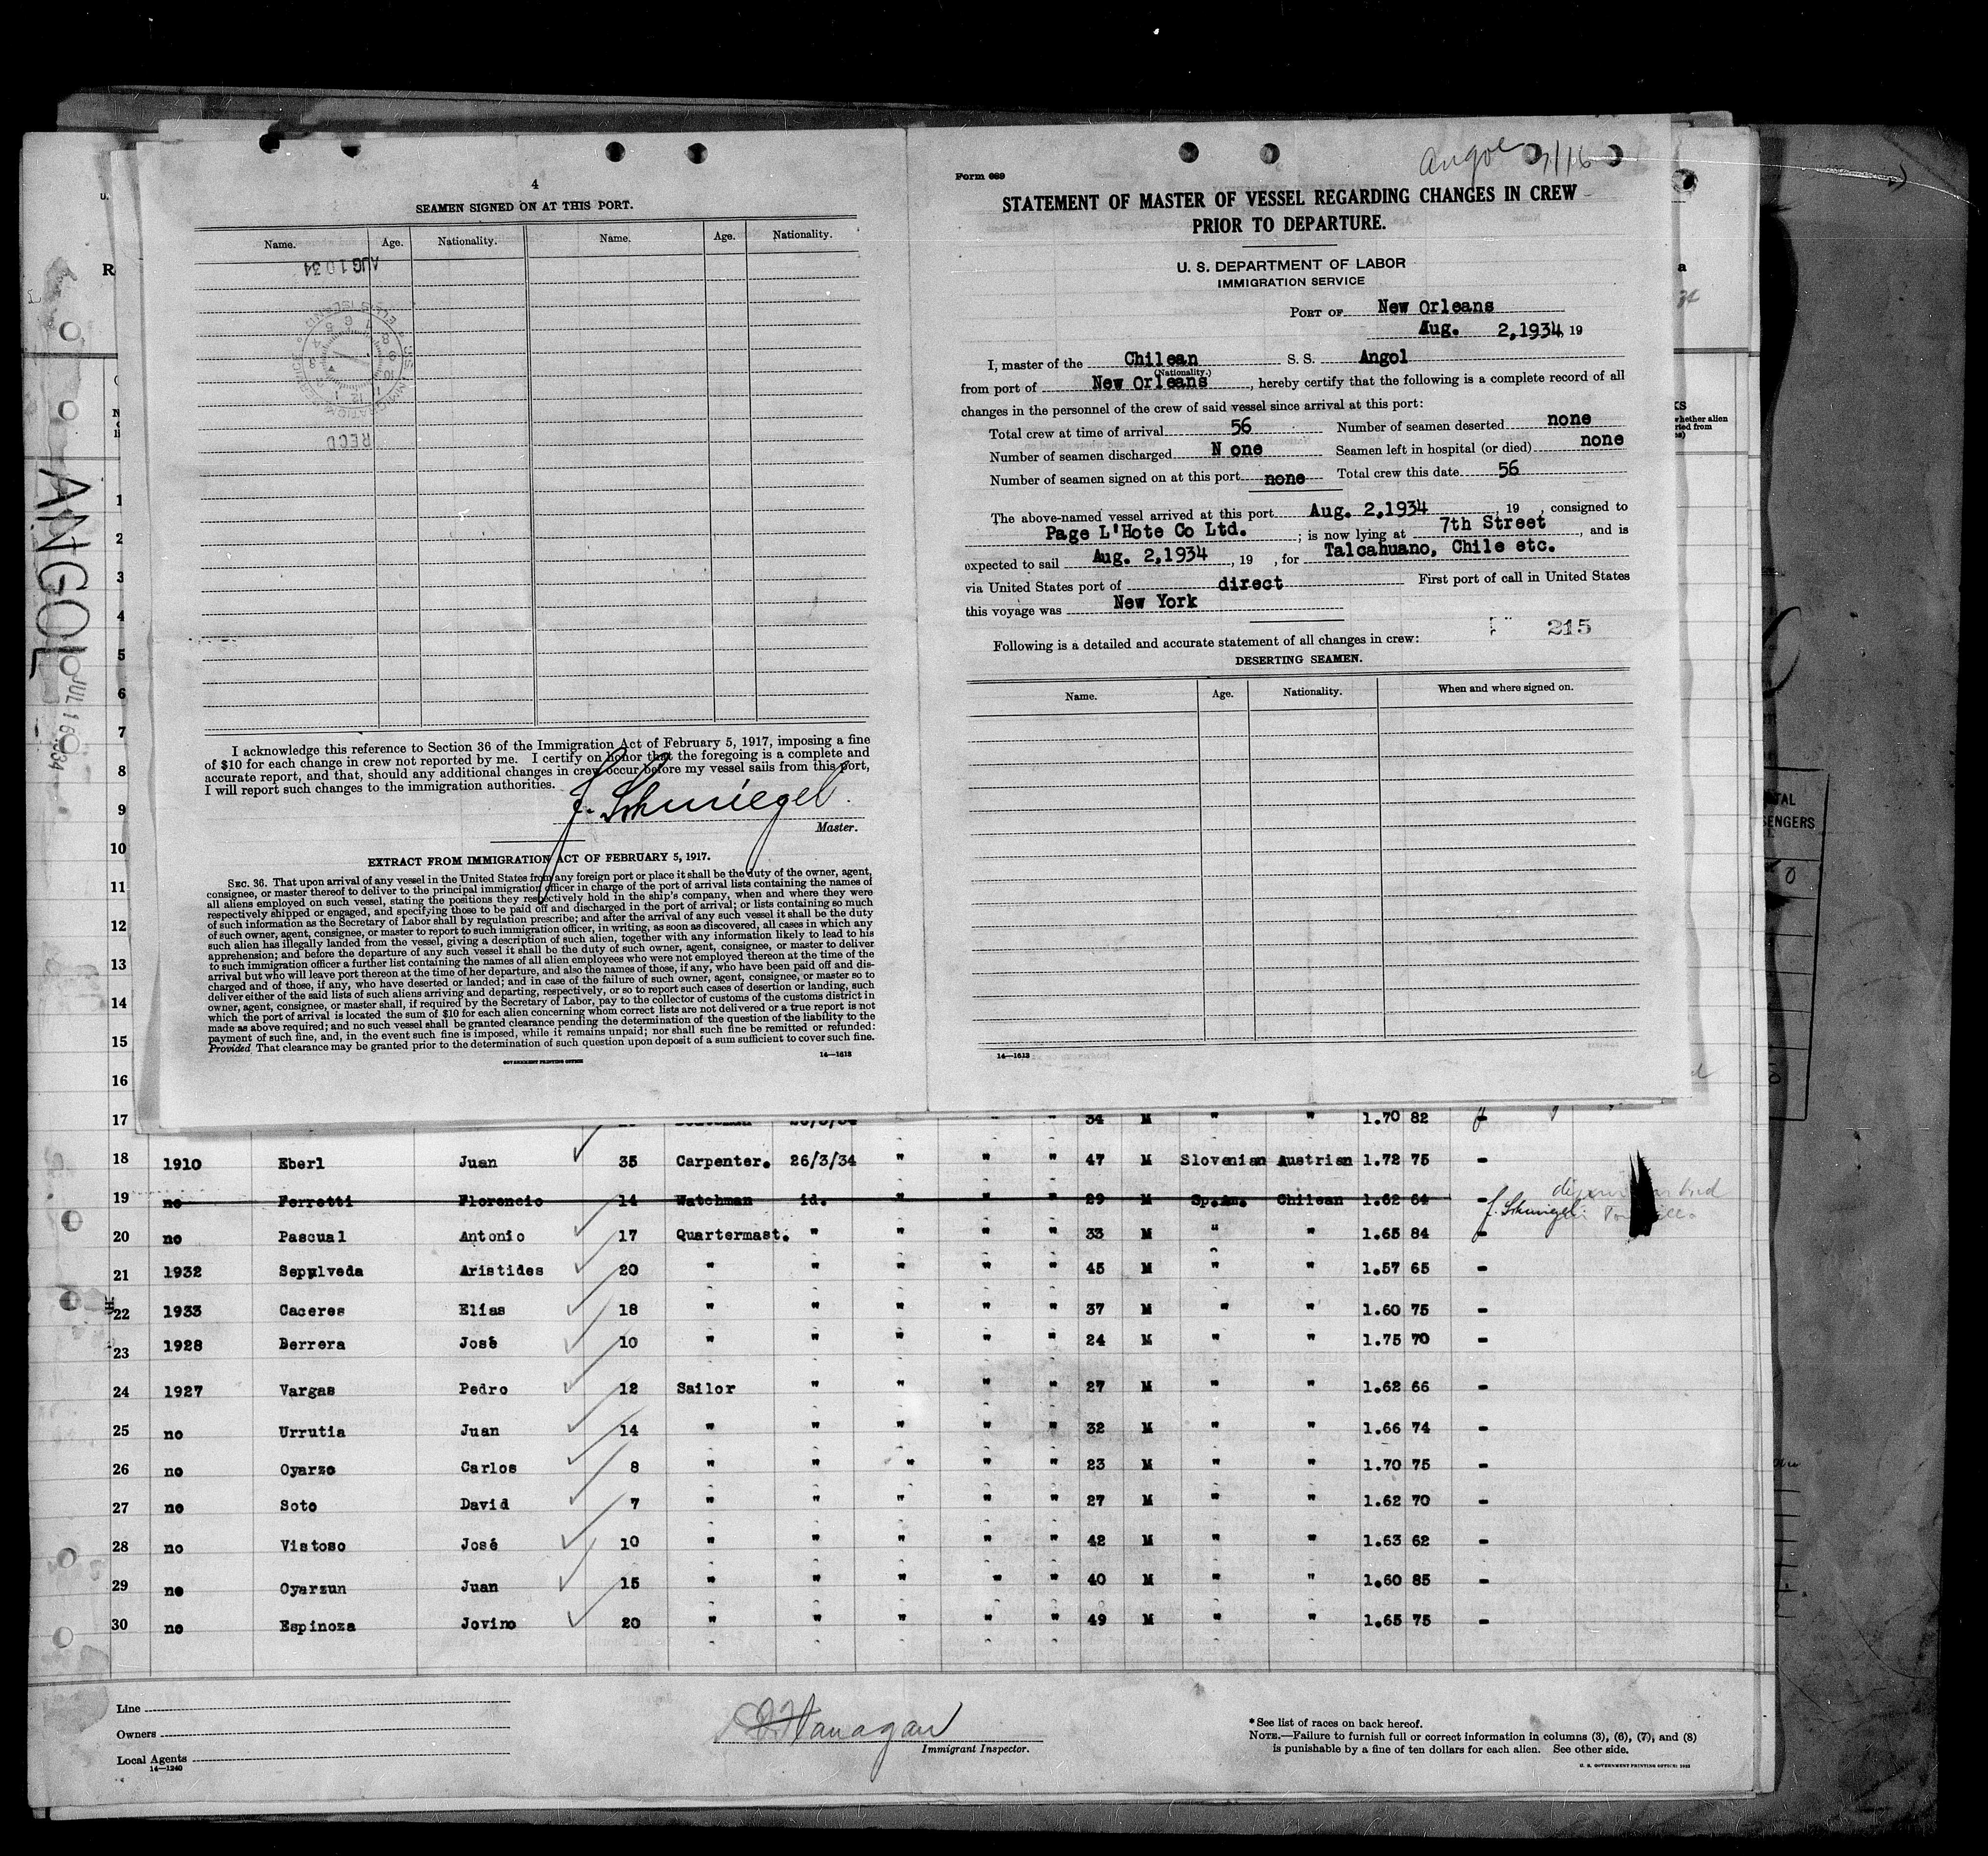 4
SEAMEN SIGNED ON AT THIS PORT.
Name. Age. Nationality. Name. Age. Nationality.
AUG 10 34
RECD
I acknowledge this reference to Section 36 of the Immigration Act of February 5, 1917, imposing a fine
of $10 for each change in crew not reported by me. I certify on honor that the foregoing is a complete and
accurate report, and that, should any additional changes in crew occur before my vessel sails from this port,
I will report such changes to the immigration authorities.
J. Schmiegel.
Master.
EXTRACT FROM IMMIGRATION ACT OF FEBRUARY 5, 1917.
SEC. 36. That upon arrival of any vessel in the United States from any foreign port or place it shall be the duty of the owner, agent,
consignee, or master thereof to deliver to the principal immigration officer in charge of the port of arrival lists containing the names of
all aliens employed on such vessel, stating the positions they respectively hold in the ship's company, when and where they were
respectively shipped or engaged, and specifying those to be paid off and discharged in the port of arrival; or lists containing so much
of such information as the Secretary of Labor shall by regulation prescribe; and after the arrival of any such vessel it shall be the duty
of such owner, agent, consignee, or master to report to such immigration officer, in writing, as soon as discovered, all cases in which any
such alien has illegally landed from the vessel, giving a description of such alien, together with any information likely to lead to his
apprehension; and before the departure of any such vessel it shall be the duty of such owner, agent, consignee, or master to deliver
to such immigration officer a further list containing the names of all alien employees who were not employed thereon at the time of the
arrival but who will leave port thereon at the time of her departure, and also the names of those, if any, who have been paid off and dis-
charged and of those, if any, who have deserted or landed; and in case of the failure of such owner, agent, consignee, or master so to
deliver either of the said lists of such aliens arriving and departing, respectively, or so to report such cases of desertion or landing, such
owner, agent, consignee, or master shall, if required by the Secretary of Labor, pay to the collector of customs of the customs district in
which the port of arrival is located the sum of $10 for each alien concerning whom correct lists are not delivered or a true report is not
made as above required; and no such vessel shall be granted clearance pending the determination of the question of the liability to the
payment of such fine, and, in the event such fine is imposed, while it remains unpaid; nor shall such fine be remitted or refunded:
Provided That clearance may be granted prior to the determination of such question upon deposit of a sum sufficient to cover such fine.
GOVERNMENT PRINTING OFFICE 14—1613
Angol 7/16
Form 689
STATEMENT OF MASTER OF VESSEL REGARDING CHANGES IN CREW
PRIOR TO DEPARTURE.
U. S. DEPARTMENT OF LABOR
IMMIGRATION SERVICE
PORT OF New Orleans
Aug. 2,1934, 19
I, master of the Chilean S. S. Angol
(Nationality.)
from port of New Orleans, hereby certify that the following is a complete record of all
changes in the personnel of the crew of said vessel since arrival at this port:
Total crew at time of arrival 56 Number of seamen deserted none
Number of seamen discharged N one Seamen left in hospital (or died) none
Number of seamen signed on at this port none Total crew this date 56
The above-named vessel arrived at this port Aug. 2,1934, 19 , consigned to
Page L'Hote Co Ltd. ; is now lying at 7th Street, and is
expected to sail Aug. 2,1934, 19 , for Talcahuano, Chile etc.
via United States port of direct First port of call in United States
this voyage was New York
215
Following is a detailed and accurate statement of all changes in crew:
DESERTING SEAMEN.
Name. Age. Nationality. When and where signed on.
14—1613
ANGOL
JUL 16 1934
1
2
3
4
5
6
7
8
9
10
11
12
13
14
15
16
17 34 M " " 1.70 82
18 1910 Eberl Juan 35 Carpenter. 26/3/34 " " " 47 M Slovenian Austrian 1.72 75 -
19 no Ferretti Florencio 14 Watchman id. " " " 29 M Sp.Am. Chilean 1.62 64 -
J. Schmiegel
20 no Pascual Antonio 17 Quartermast. " " " " 33 M " " 1.65 84 -
21 1932 Sepulveda Aristides 20 " " " " " 45 M " " 1.57 65 -
22 1933 Caceres Elias 18 " " " " " 37 M " " 1.60 75 -
23 1928 Berrera José 10 " " " " " 24 M " " 1.75 70 -
24 1927 Vargas Pedro 12 Sailor " " " " 27 M " " 1.62 66 -
25 no Urrutia Juan 14 " " " " " 32 M " " 1.66 74 -
26 no Oyarzo Carlos 8 " " " " " 23 M " " 1.70 75 -
27 no Soto David 7 " " " " " 27 M " " 1.62 70 -
28 no Vistoso José 10 " " " " " 42 M " " 1.63 62 -
29 no Oyarzun Juan 15 " " " " " 40 M " " 1.60 85 -
30 no Espinoza Jovino 20 " " " " " 49 M " " 1.65 75 -
Line
Owners
Local Agents
14—1240
Immigrant Inspector.
* See list of races on back hereof.
NOTE.—Failure to furnish full or correct information in columns (3), (6), (7), and (8)
is punishable by a fine of ten dollars for each alien. See other side.
U. S. GOVERNMENT PRINTING OFFICE: